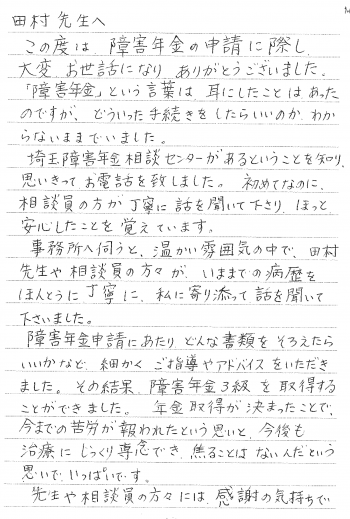 田村先生へ
この度は、障害年金の申請に際し、
大変、お世話になり、ありがとうございました。
「障害年金」という言葉は、耳にしたことはあった
のですが、どういった手続きをしたらいいのか、わか
らないままでいました。
埼玉障害年金相談センターがあるということを知り、
思いきってお電話を致しました。初めてなのに、
相談員の方が丁寧に話を聞いて下さり、ほっと
安心したことを覚えています。
事務所へ伺うと、温かい雰囲気の中で、田村
先生や相談員の方々が、いままでの病歴を
ほんとうに丁寧に、私に寄り添って話を聞いて
下さいました。
障害年金申請にあたり、どんな書類をそろえたら
いいかなど、細かくご指導やアドバイスをいただき
ました。その結果、障害年金3級を取得する
ことができました。年金取得が決まったことで、
今までの苦労が報われたという思いと、今後も
治療にじっくり専念でき、焦ることはないんだという
思いで、いっぱいです。
先生や相談員の方々には、感謝の気持ちで